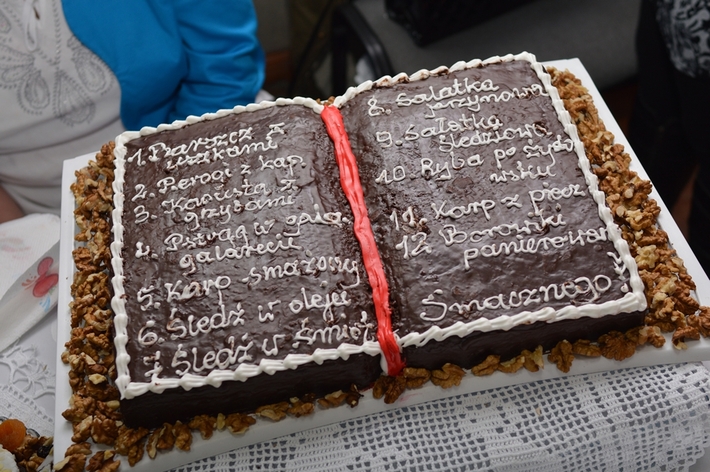 1. Barszcz z
uszkami
2. Pierogi z kap.
3. Kapusta z
grzybami
4. Pstrąg w
galarecie
5. Karp smażony
6. Śledź w oleju
7. Śledź w śmiet
8. Sałatka
jarzynowa
9. Sałatka
śledziowa
10. Ryba po żydo
wsku
11. Karp z piec
12. Borowiki
panierowan
Smacznego